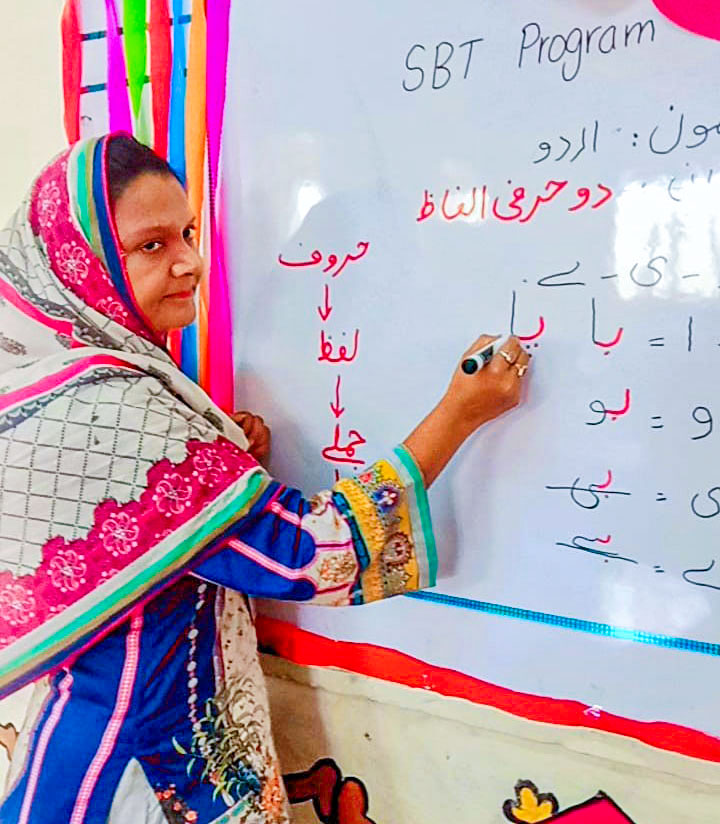 SBT Program
اردو :
دو حرفی الفاظ
- ی - ے .
ا = با پا
و = بو
ی = بی
ے = بے
حروف
↓
لفظ
↓
جملے